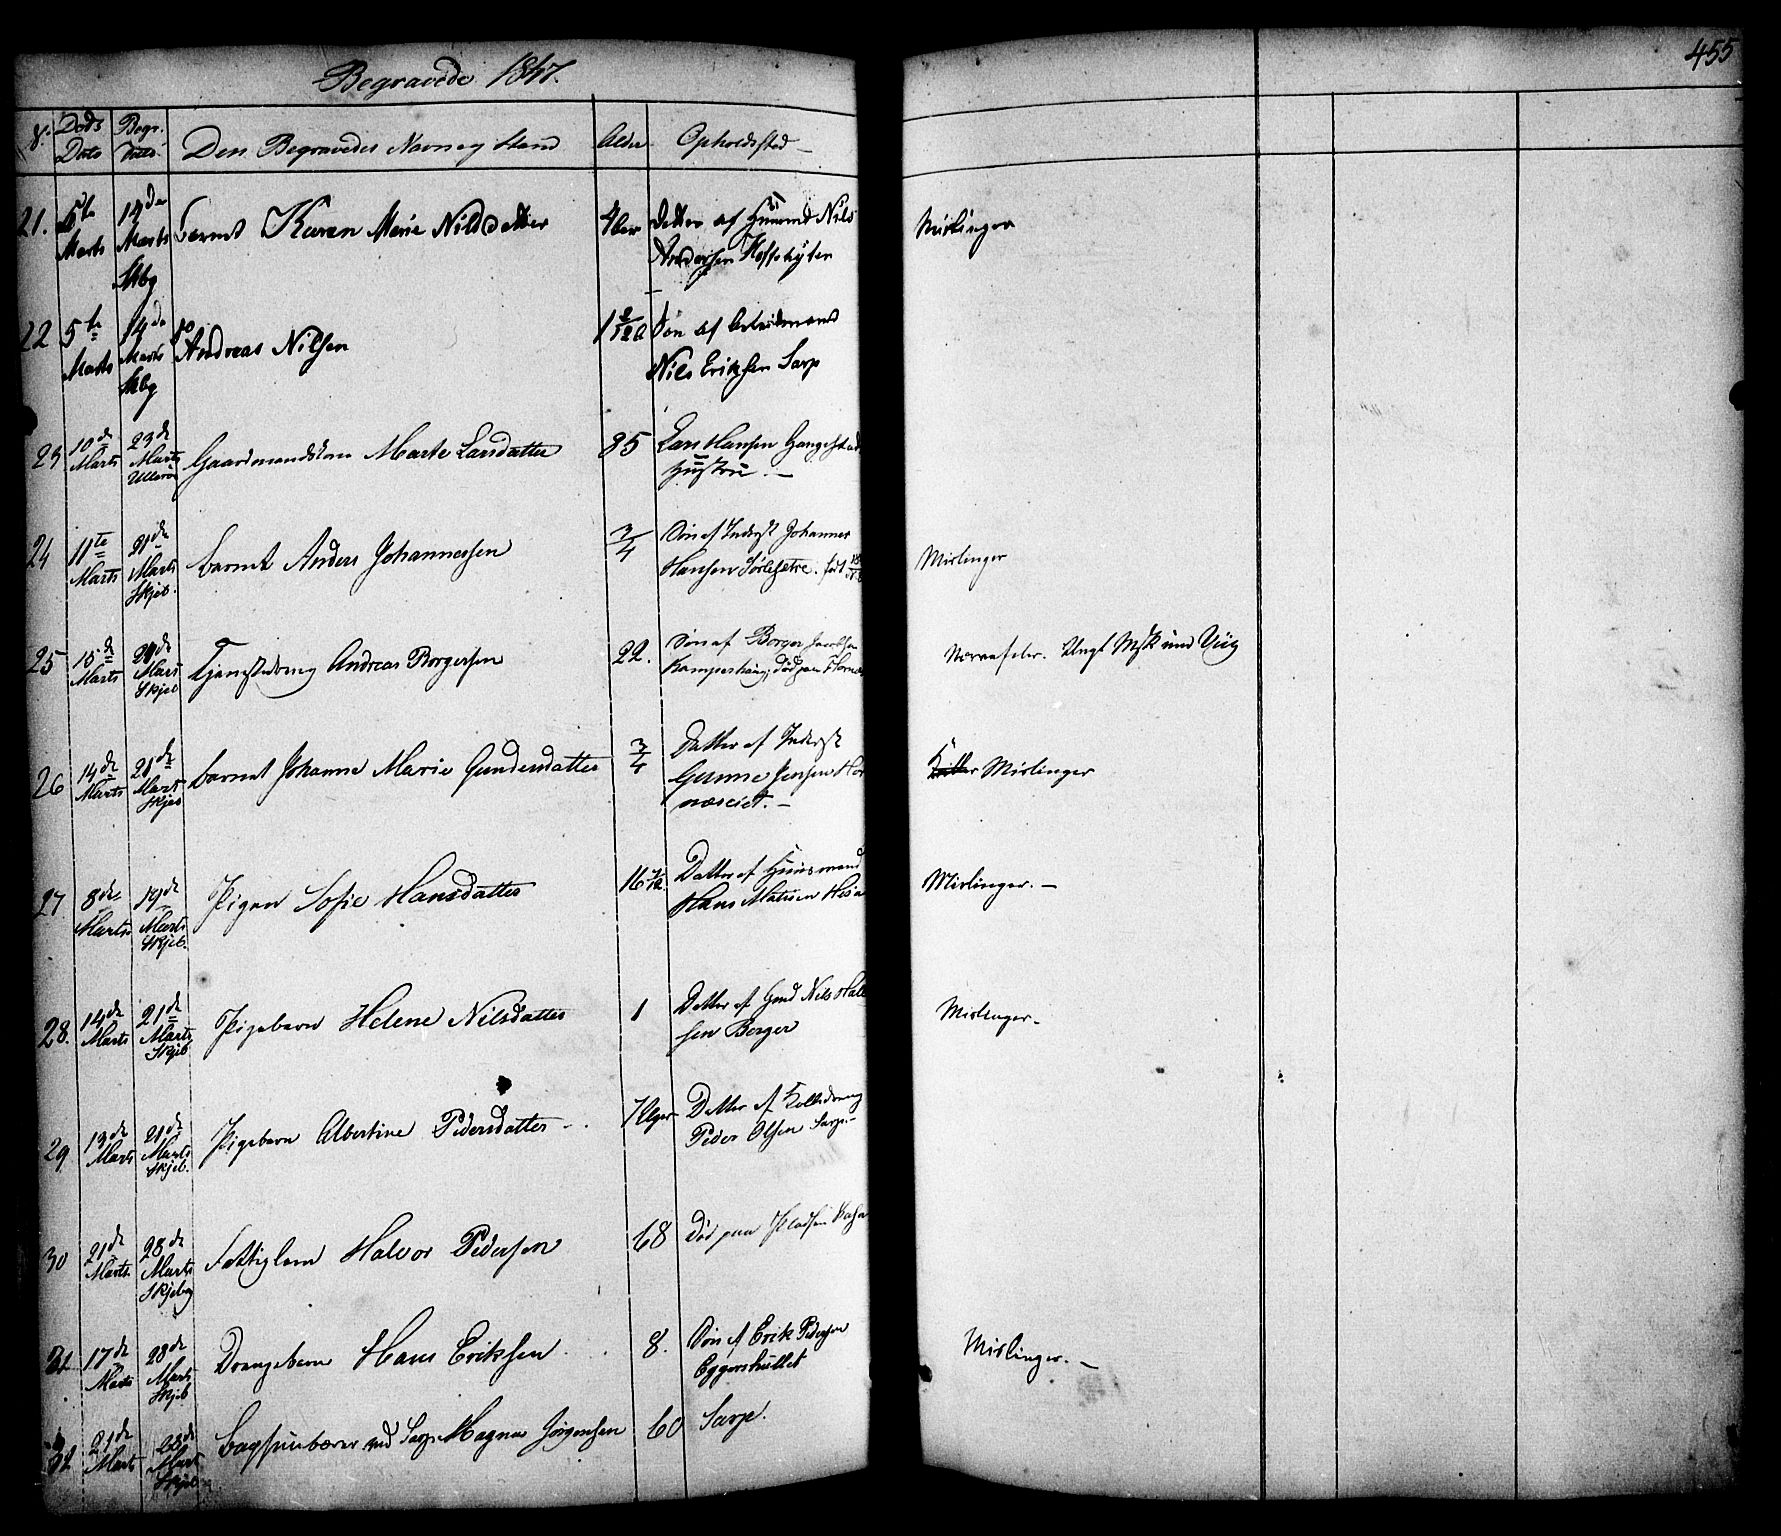 455
Begravede 1847.
Døds Dato
Begr. Dato
Den Begravedes Navn og Stand
Alder
Opholdssted
21. 5te Marts 14de Marts Skbg
barnet Karen Marie Nilsdatter
Datter af Huusmd Nils
Andersen
Mislinger
22 5te Marts 14de Marts Skbg
do Andreas Nilsen
1 2/12
Søn af Arbeidsmand
Nils Eriksen Sarp
23 10de Marts 23de Marts Ullerøe
Gaardmandskone Marte Larsdatter
85
Lars Hansen
Hustrue.
24 11te Marts 21de Marts Skjeb.
barnet Anders Johannessen
3/4
Søn af Inderst Johannes
Hansen
Mislinger
25 15de Marts Marts Skjeb
Tjenestedreng Andreas Borgersen
22.
Søn af Borger Jacobsen
Nervefeber.
26 14de Marts 21de Marts Skjeb
barnet Johanne Marie Gundersdatter
3/4
Datter af Inderst
Jensen
Mislinger
27 8de Marts 19de Marts Skjeb.
Pigen Sofie Hansdatter
16
Datter af Huusmand
Hans
Mislinger. -
28. 14de Marts 21de Marts Skjeb
Pigebarn Helene Nilsdatter
1
Datter af Gmd Nils
sen Borger
Mislinger -
29 13de Marts 21de Marts Skjeb.
Pigebarn Albertine Pedersdatter -
7 Uger
Datter af
Peder Olsen Sarp. -
30 21de Marts 28de Marts Skjeberg
Fattiglem Halvor Pedersen
68
Død paa
31 17de Marts 28de Marts Skjeb
Drengebarn Hans Eriksen
8.
Søn af Erik Pedersen
Mislinger. -
32 21de Marts 28de Marts Skjeb
ved Sarp Magnus Jørgensen
60
Sarp.